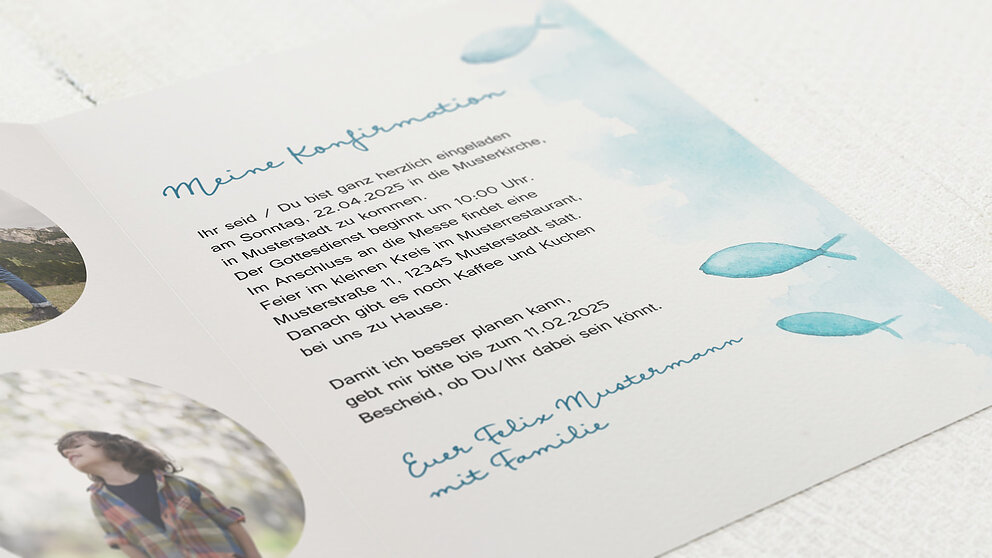 Meine Konfirmation
Ihr seid / Du bist ganz herzlich eingeladen
am Sonntag, 22.04.2025 in die Musterkirche,
in Musterstadt zu kommen.
Der Gottesdienst beginnt um 10:00 Uhr.
Im Anschluss an die Messe findet eine
Feier im kleinen Kreis im Musterrestaurant,
Musterstraße 11, 12345 Musterstadt statt.
Danach gibt es noch Kaffee und Kuchen
bei uns zu Hause.
Damit ich besser planen kann,
gebt mir bitte bis zum 11.02.2025
Bescheid, ob Du/Ihr dabei sein könnt.
Euer Felix Mustermann
mit Familie